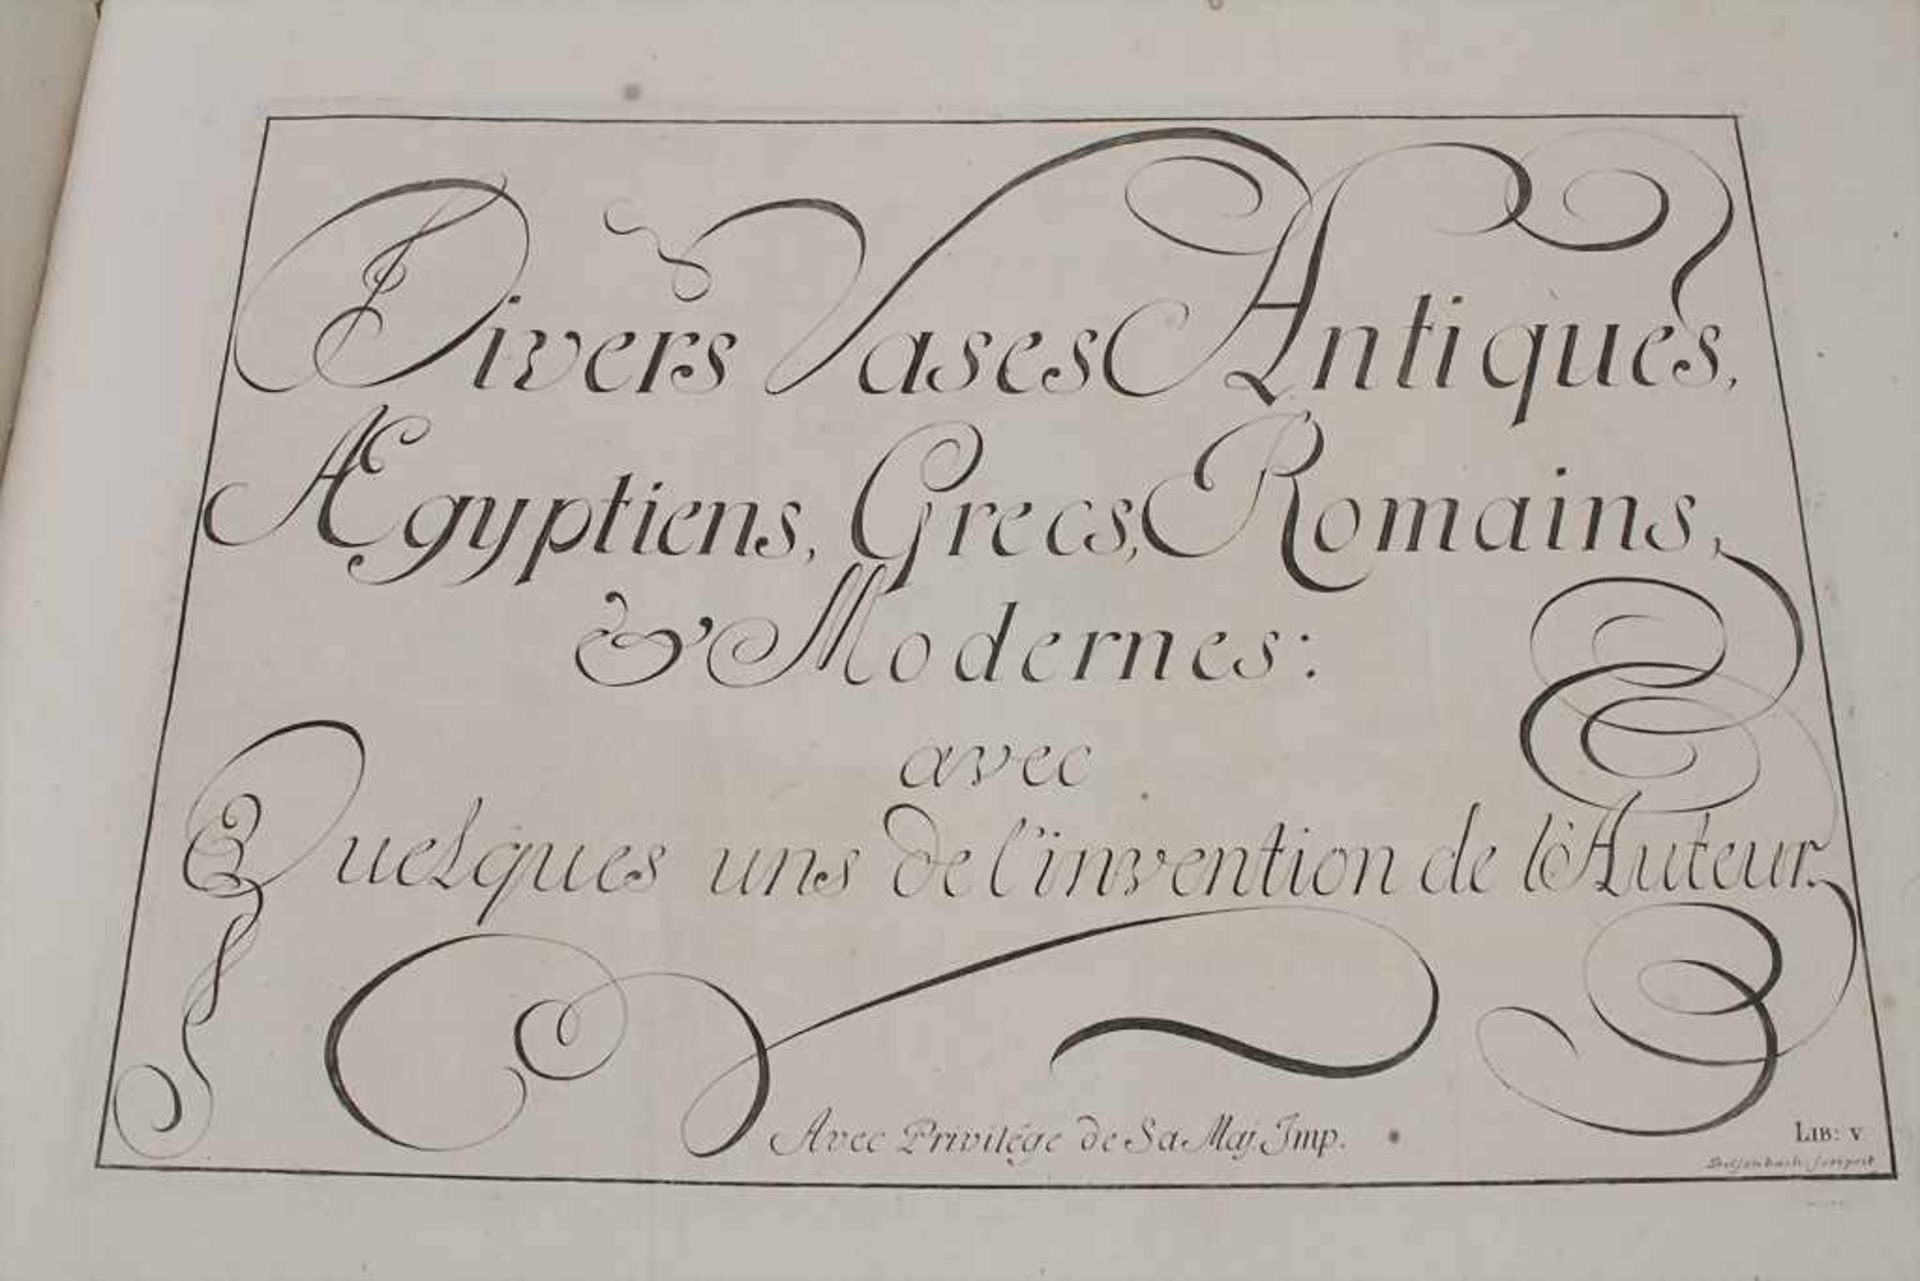 Divers Vases Antiques,
Ægyptiens, Grecs, Romains,
& Modernes:
avec
Quelques uns de l'invention de l'Auteur.
Avec Privilége de Sa Maj. Imp.
LIB: V